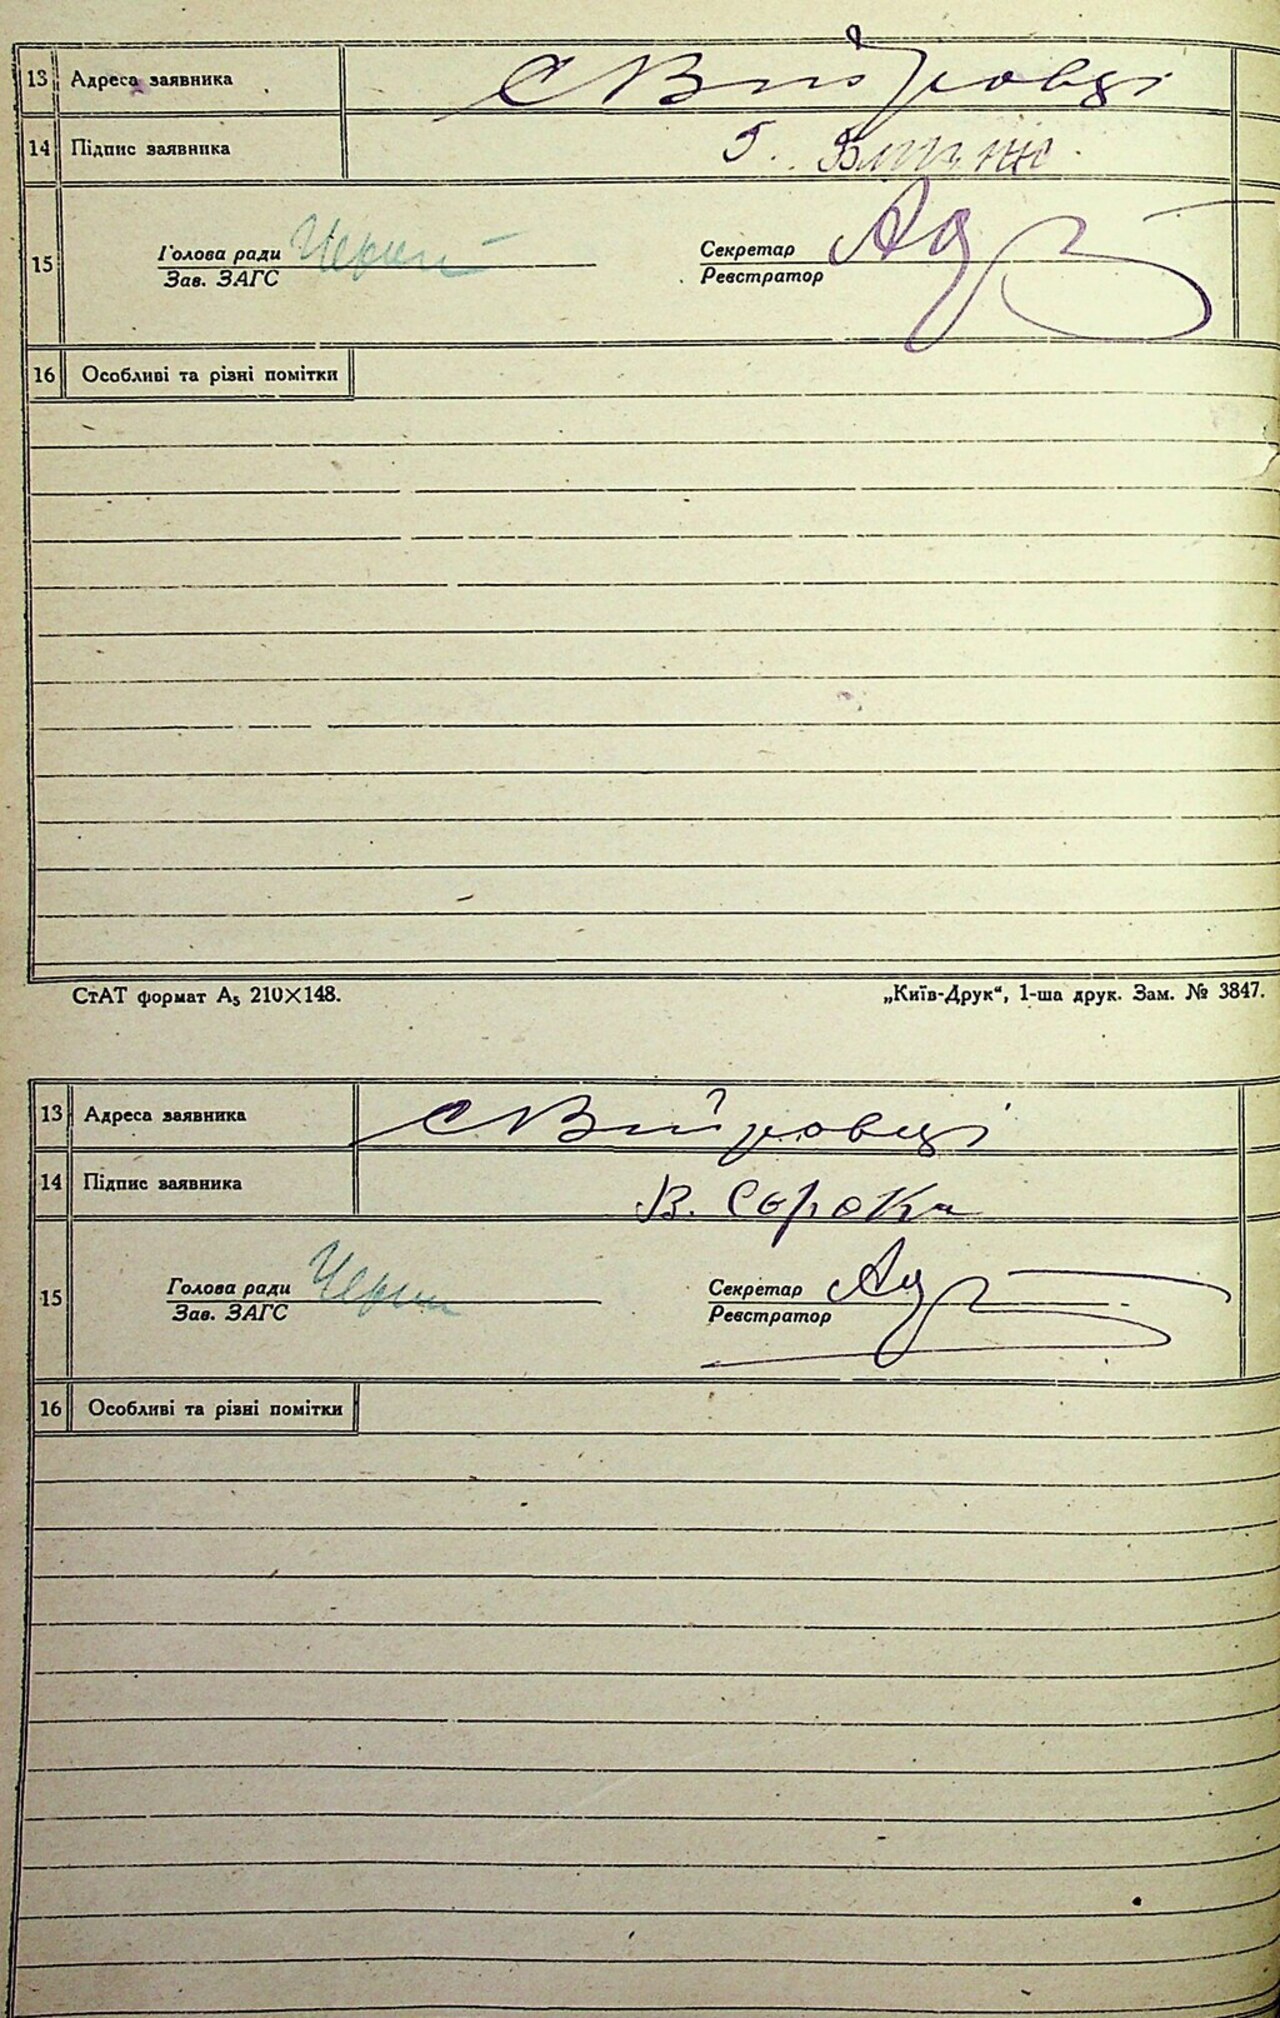 13 Адреса заявника С Війтовці
14 Підпис заявника
15 Голова ради Секретар
Зав. ЗАГС Реєстратор
16 Особливі та різні помітки
СтАТ формат А5 210×148. „Київ-Друк“, 1-ша друк. Зам. № 3847.
13 Адреса заявника С Війтовці
14 Підпис заявника В. Сорока
15 Голова ради Секретар
Зав. ЗАГС Реєстратор
16 Особливі та різні помітки